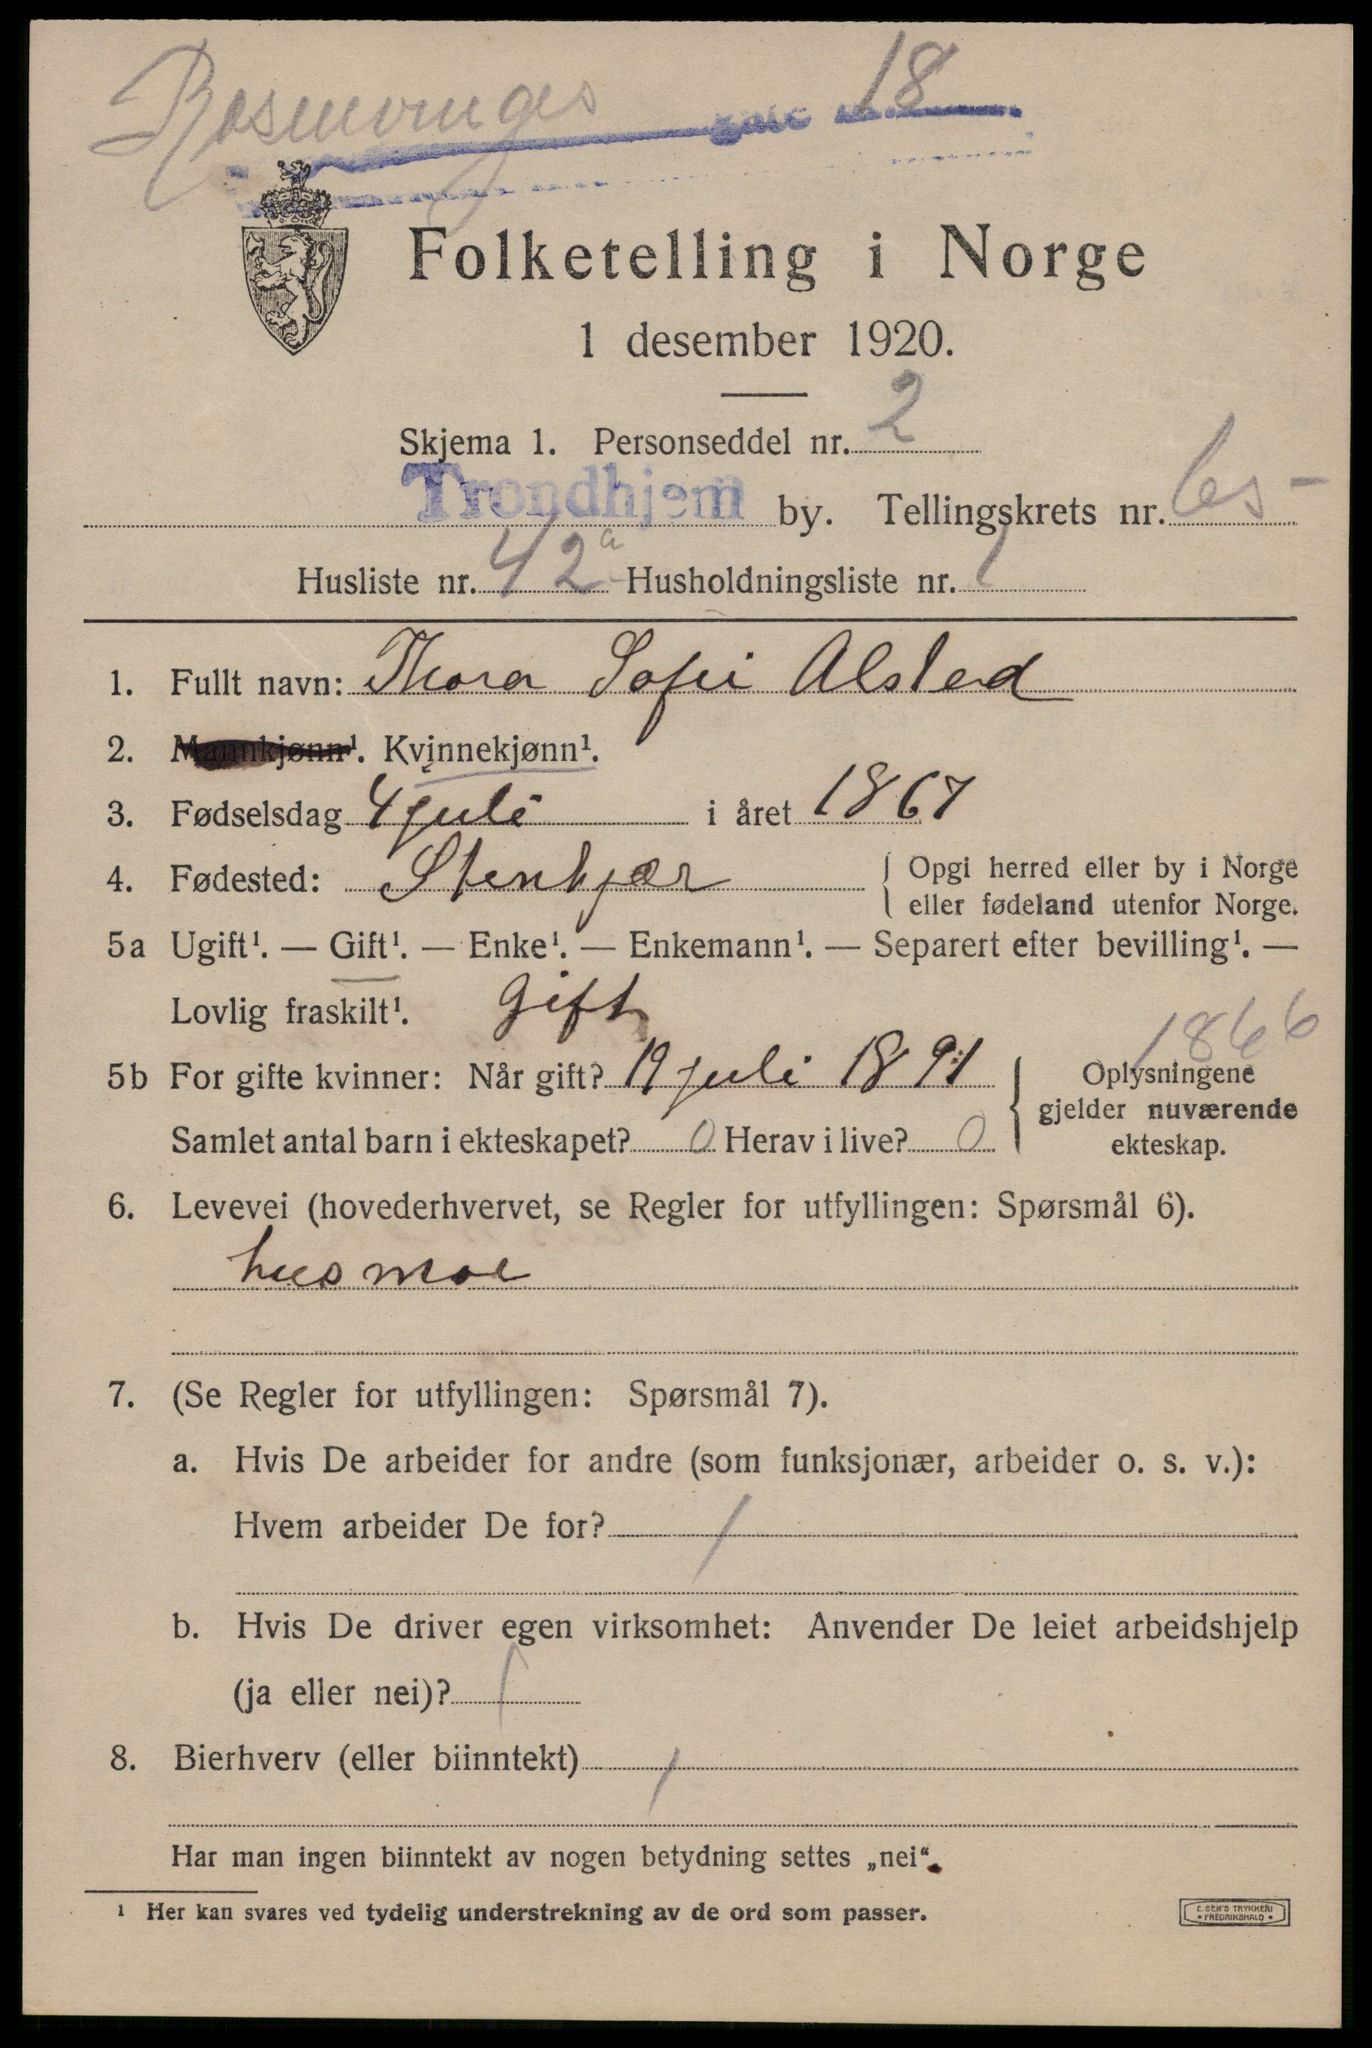 18
Folketelling i Norge
1 desember 1920.
Skjema 1. Personseddel nr. 2
Trondhjem by. Tellingskrets nr.
Husliste nr. 42a Husholdningsliste nr. 1
1. Fullt navn: Thora Sofie Alsted
2. Mannkjønn¹. Kvinnekjønn¹.
3. Fødselsdag 4 juli i året 1867
4. Fødested: Stenkjær { Opgi herred eller by i Norge
eller fødeland utenfor Norge.
5a Ugift¹. — Gift¹. — Enke¹. — Enkemann¹. — Separert efter bevilling¹. —
Lovlig fraskilt¹. Gift
1866
5b For gifte kvinner: Når gift? 19 juli 1891 { Oplysningene
gjelder nuværende
Samlet antal barn i ekteskapet? 0 Herav i live? 0 ekteskap.
6. Levevei (hovederhvervet, se Regler for utfyllingen: Spørsmål 6).
husmor
7. (Se Regler for utfyllingen: Spørsmål 7).
a. Hvis De arbeider for andre (som funksjonær, arbeider o. s. v.):
Hvem arbeider De for? /
b. Hvis De driver egen virksomhet: Anvender De leiet arbeidshjelp
(ja eller nei)? /
8. Bierhverv (eller biinntekt) /
Har man ingen biinntekt av nogen betydning settes „nei“.
¹ Her kan svares ved tydelig understrekning av de ord som passer.
E. SEM'S TRYKKERI
• FREDRIKSHALD •